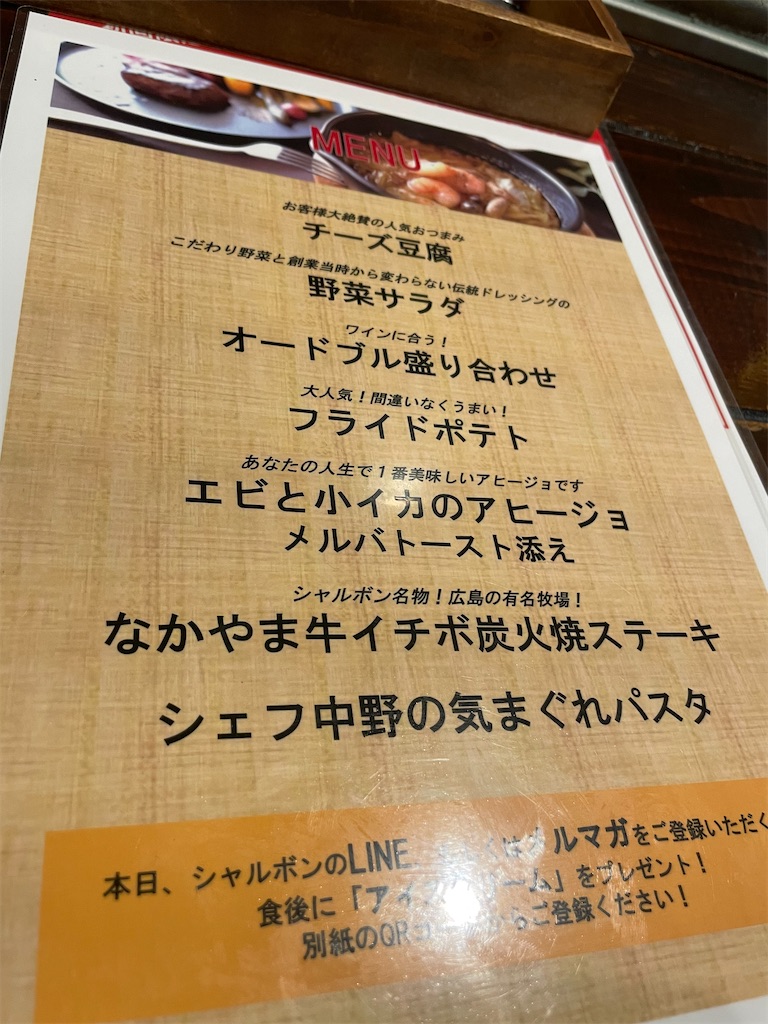 MENU
お客様大絶賛の人気おつまみ
チーズ豆腐
こだわり野菜と創業当時から変わらない伝統ドレッシングの
野菜サラダ
ワインに合う!
オードブル盛り合わせ
大人気!間違いなくうまい!
フライドポテト
あなたの人生で1番美味しいアヒージョです
エビと小イカのアヒージョ
メルバトースト添え
シャルボン名物!広島の有名牧場!
なかやま牛イチボ炭火焼ステーキ
シェフ中野の気まぐれパスタ
本日、シャルボンのLINE くはメルマガをご登録いただく
食後に「アイ ーム」をプレゼント!
別紙のQR からご登録ください!